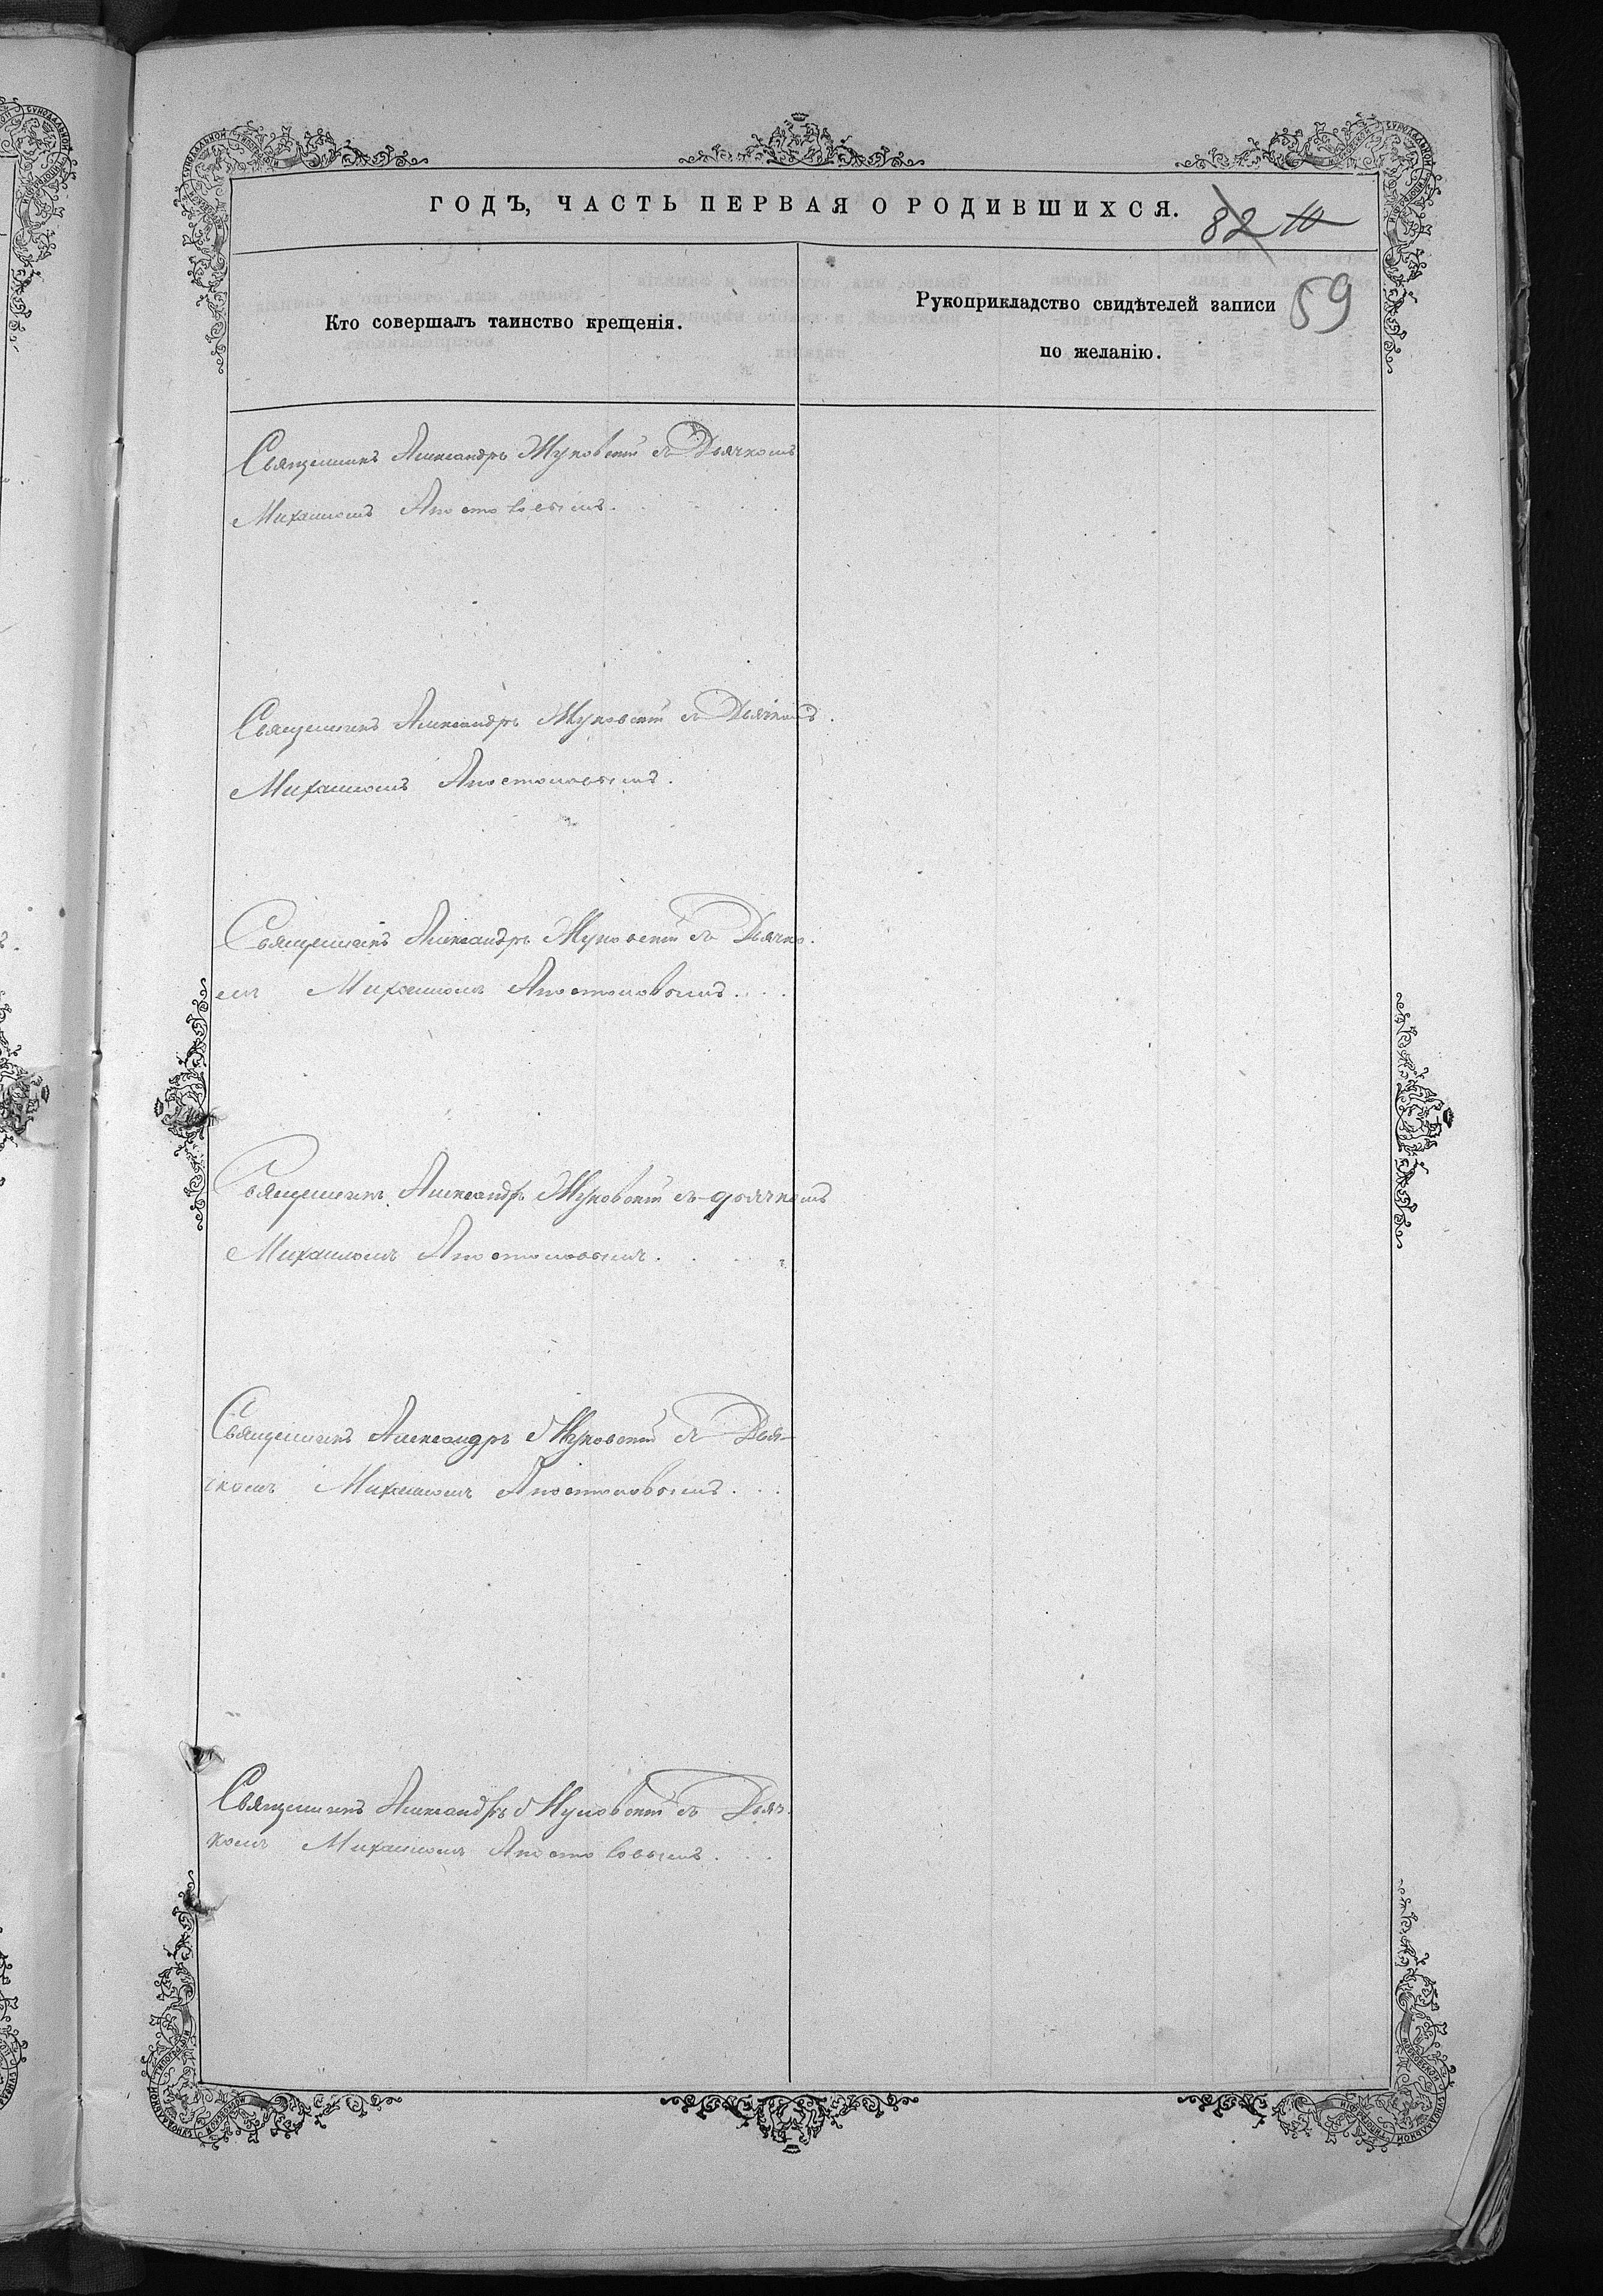 ГОДЪ, ЧАСТЬ ПЕРВАЯ О РОДИВШИХСЯ.
82
59
Кто совершалъ таинство крещенія.
Рукоприкладство свидѣтелей записи
по желанію.
Священникъ Александръ Жуковскій съ Дьячкомъ
Михаиломъ Апостоловымъ.
Священникъ Александръ Жуковскій съ Дьячкомъ.
Михаиломъ Апостоловымъ.
Священникъ Александръ Жуковскій съ Дьячко
мъ Михаиломъ Апостоловымъ.
Священникъ Александръ Жуковскій съ дьячкомъ
Михаиломъ Апостоловымъ.
Священникъ Александръ Жуковскій съ Дья-
чкомъ Михаиломъ Апостоловымъ.
Священникъ Александръ Жуковскій съ Дьяч-
комъ Михаиломъ Апостоловымъ.